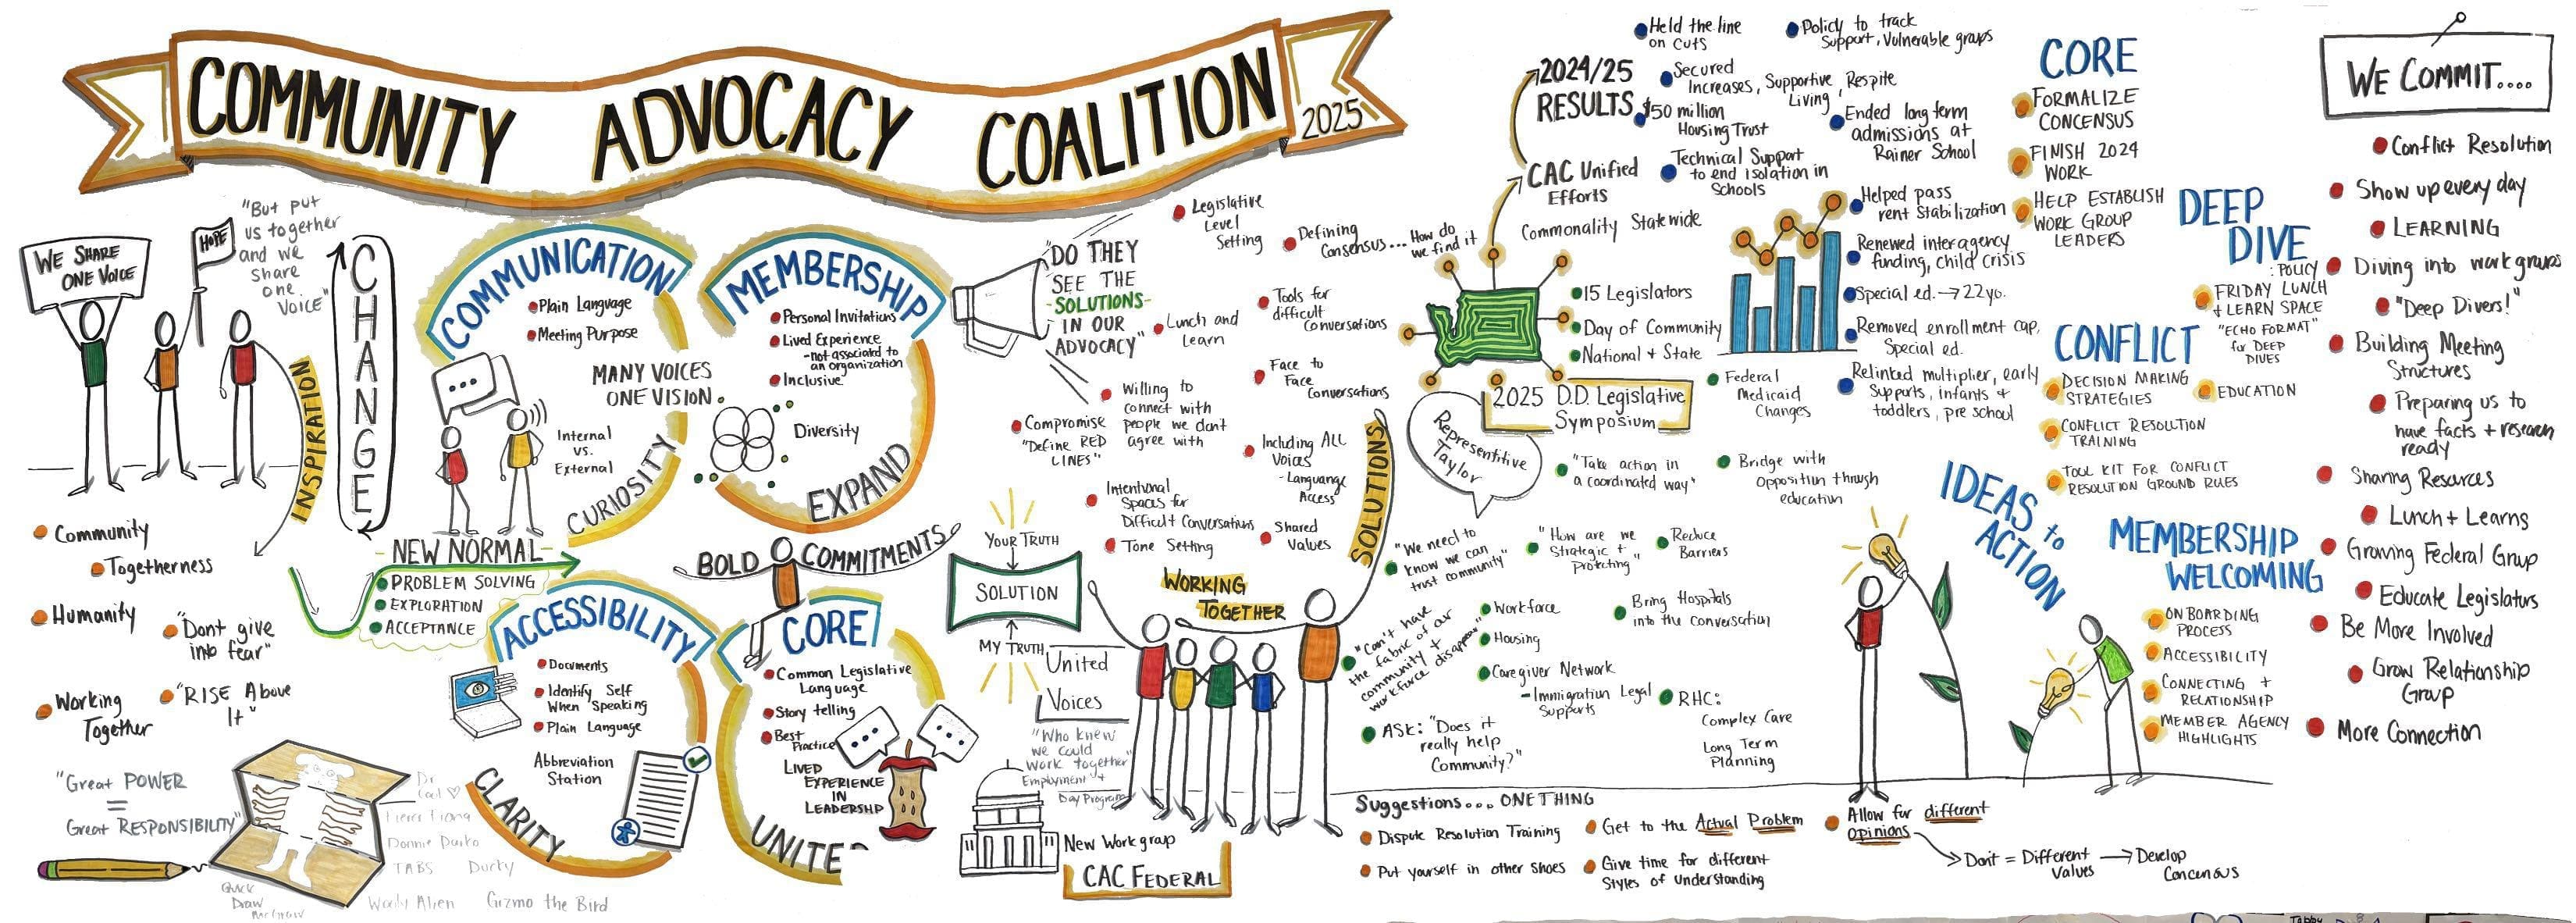 COMMUNITY ADVOCACY COALITION
2025
WE SHARE
ONE VOICE
HOPE
"But put
us together
and we
share
one
voice"
CHANGE
INSPIRATION
Community
Togetherness
Humanity
"Dont give
into fear"
Working
Together
"RISE Above
It"
"Great POWER
=
Great RESPONSIBILITY"
Quick
Draw
McGraw
Dr.
Cool
Fierce Fiona
Donnie Darko
TABS Durty
Wooly Alien
Gizmo the Bird
COMMUNICATION
Plain Language
Meeting Purpose
MANY VOICES
ONE VISION
Internal
vs.
External
CURIOSITY
NEW NORMAL
PROBLEM SOLVING
EXPLORATION
ACCEPTANCE
MEMBERSHIP
Personal Invitations
Lived Experience
- not associated to
an organization
Inclusive
Diversity
EXPAND
BOLD COMMITMENTS
ACCESSIBILITY
Documents
Identify Self
When Speaking
Plain Language
Abbreviation
Station
CLARITY
CORE
Common Legislative
Language
Story telling
Best
Practice
LIVED
EXPERIENCE
IN
LEADERSHIP
UNITED
"DO THEY
SEE THE
-SOLUTIONS-
IN OUR
ADVOCACY"
Legislative
Level
Setting
Defining
Consensus... How do
we find it
Lunch and
Learn
Tools for
difficult
Conversations
Willing to
connect with
people we don't
agree with
Face to
Face
Conversations
Compromise
"Define RED
LINES"
Including ALL
Voices
- Language
Access
Intentional
Spaces for
Difficult Conversations
Shared
Values
Tone Setting
SOLUTIONS
YOUR TRUTH
SOLUTION
MY TRUTH
WORKING
TOGETHER
United
Voices
"Who knew
we could
work together"
Employment +
Day Program
New Workgroup
CAC FEDERAL
2024/25
RESULTS
CAC Unified
Efforts
Commonality Statewide
Held the line
on cuts
Policy to track
Support, Vulnerable groups
Secured
Increases, Supportive, Respite
Living
$50 million
Housing Trust
Ended long term
admissions at
Rainer School
Technical Support
to end isolation in
Schools
Helped pass
rent Stabilization
Renewed interagency
funding, child crisis
Special ed. → 22yo.
Removed enrollment cap,
Special ed.
Relinked multiplier, early
Supports, infants +
toddlers, pre school
15 Legislators
Day of Community
National + State
Federal
Medicaid
Changes
2025 D.D. Legislative
Symposium
Representitive
Taylor
"Take action in
a coordinated way"
Bridge with
Opposition through
education
"We need to
know we can
trust community"
"How are we
Strategic +
Protecting"
Reduce
Barriers
"Can't have
the fabric of our
community +
workforce disappear"
Workforce
Housing
Bring Hospitals
into the conversation
Caregiver Network
- Immigration Legal
Supports
RHC:
Complex Care
Long Term
Planning
ASK: "Does it
really help
Community?"
Suggestions... ONE THING
Dispute Resolution Training
Get to the Actual Problem
Allow for different
opinions
Put yourself in other shoes
Give time for different
Styles of Understanding
Don't = Different → Develop
Values
Concensus
CORE
FORMALIZE
CONCENSUS
FINISH 2024
WORK
HELP ESTABLISH
WORK GROUP
LEADERS
DEEP
DIVE
: POLICY
FRIDAY LUNCH
+ LEARN SPACE
"ECHO FORMAT"
for DEEP
DIVES
EDUCATION
CONFLICT
DECISION MAKING
STRATEGIES
CONFLICT RESOLUTION
TRAINING
TOOL KIT FOR CONFLICT
RESOLUTION GROUND RULES
IDEAS to
ACTION
MEMBERSHIP
WELCOMING
ONBOARDING
PROCESS
ACCESSIBILITY
CONNECTING +
RELATIONSHIP
MEMBER AGENCY
HIGHLIGHTS
WE COMMIT....
Conflict Resolution
Show up every day
LEARNING
Diving into workgroups
"Deep Divers!"
Building Meeting
Structures
Preparing us to
have facts + research
ready
Sharing Resources
Lunch + Learns
Growing Federal Group
Educate Legislators
Be More Involved
Grow Relationship
Group
More Connection